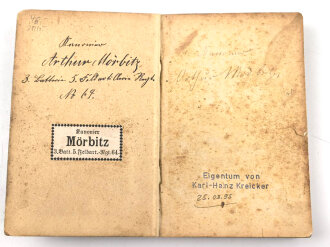 Kanonier
Arthur Mörbitz
3. Batterie 5. Feldart. Regt.
No 64.
Kanonier
Mörbitz
3. Batt. 5. Feldart.-Rgt. 64.
Kanonier
Arthur Mörbitz
Eigentum von
Karl-Heinz Kreicker
25.03.95